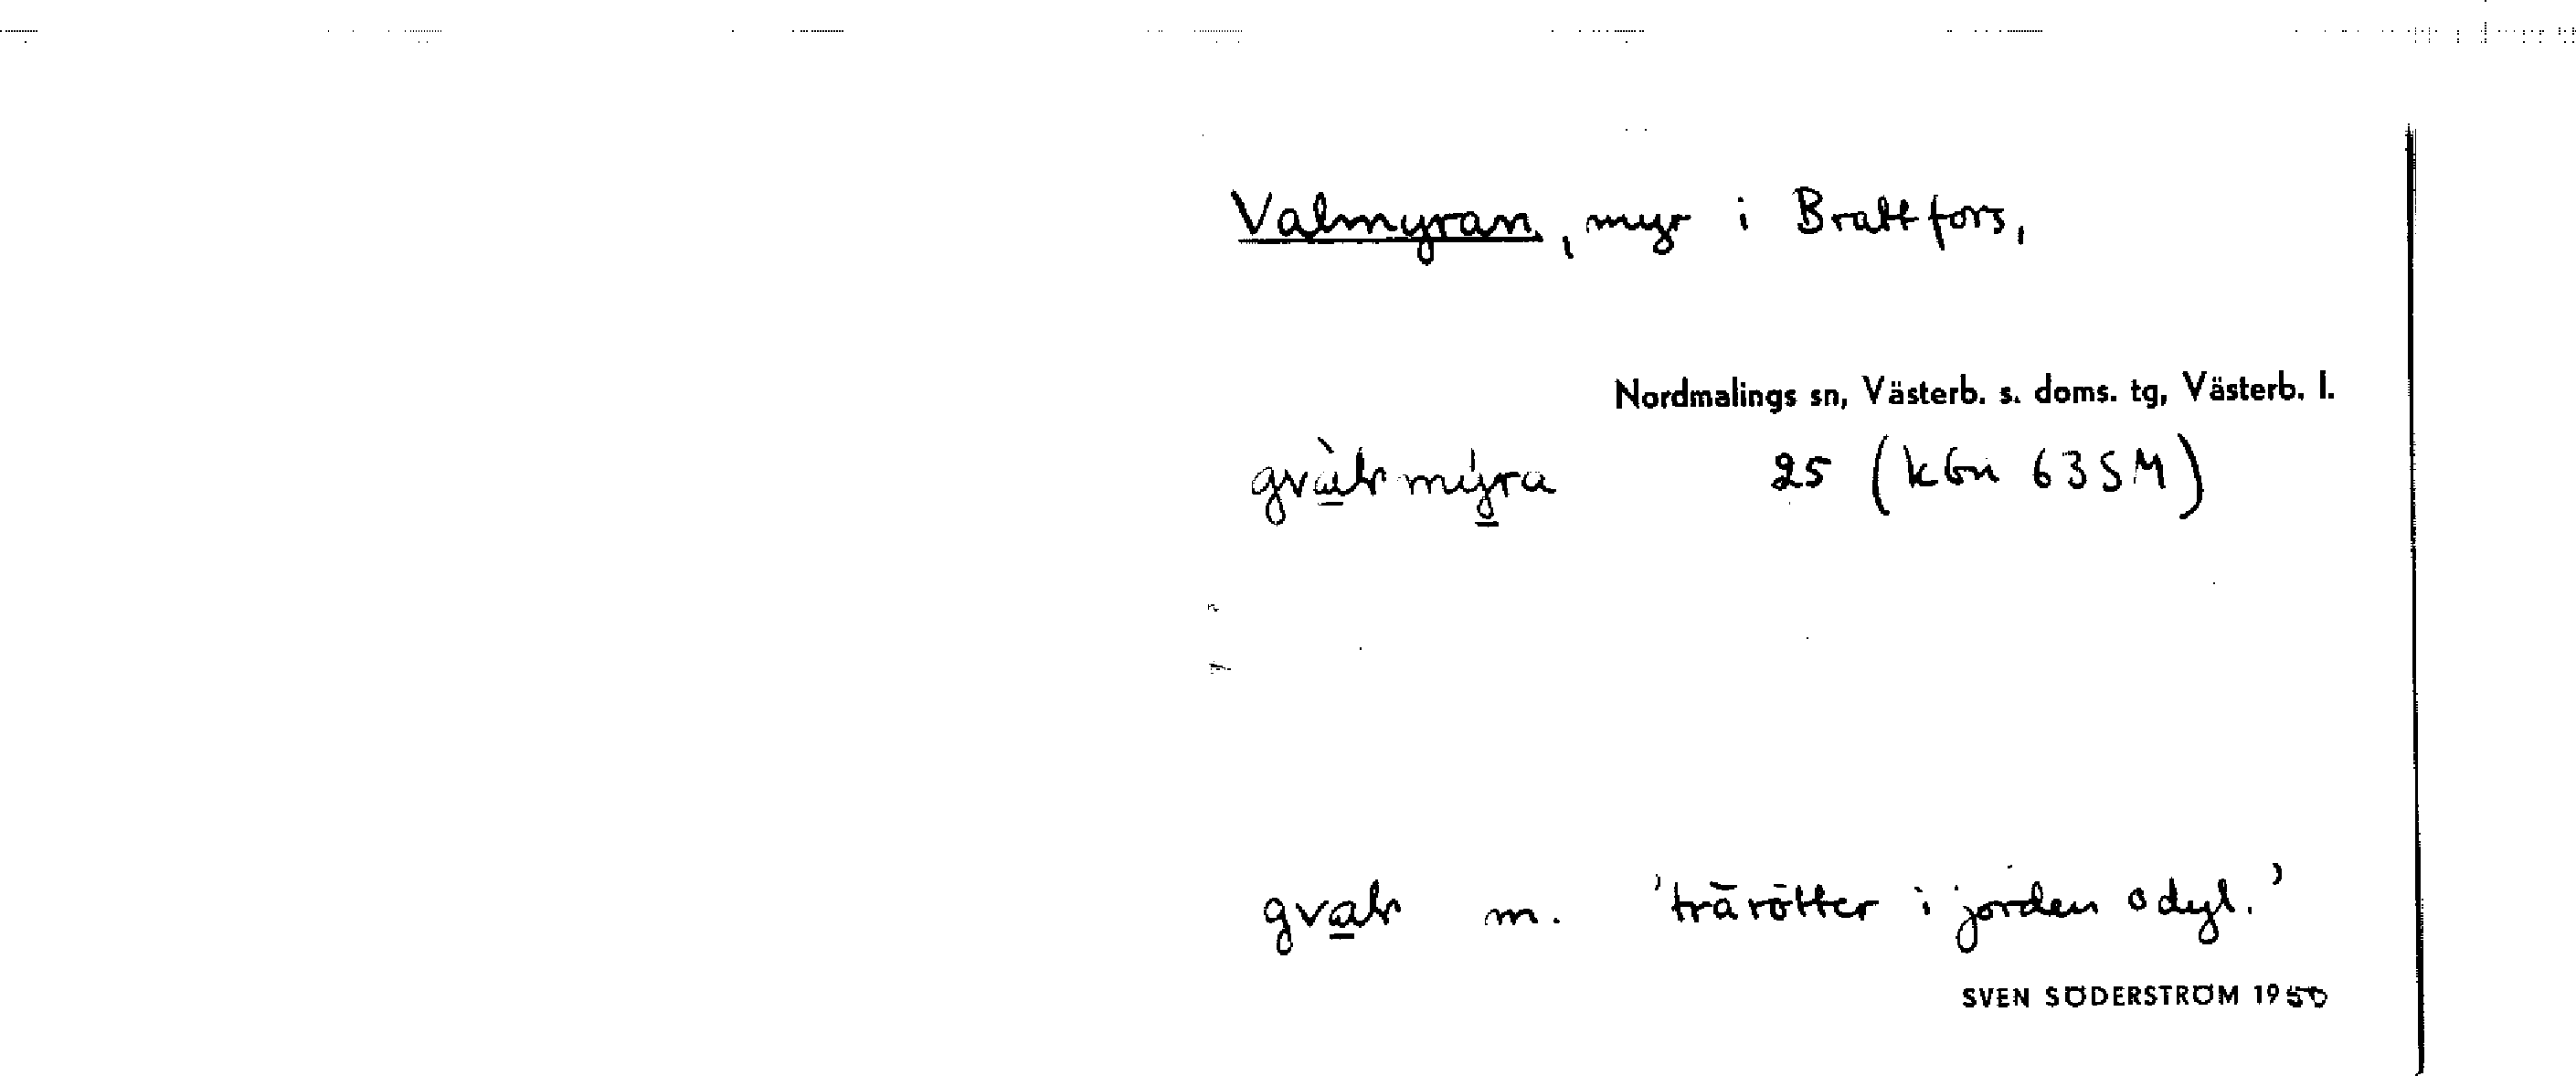 Valmyran, myr i Brattfors,
Nordmalings sn, Västerb. s. doms. tg, Västerb. l.
25 (kbn 63SM)
m. 'trärötter i jorden o dyl.'
SVEN SÖDERSTRÖM 1950